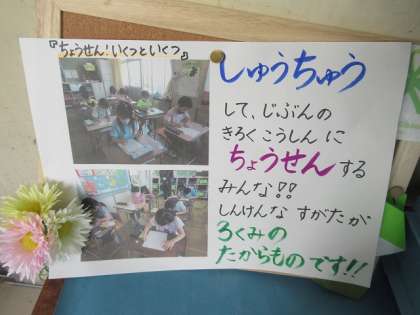 『ちょうせん!いくつといくつ』
しゅうちゅう
して、じぶんの
きろくこうしんに
ちょうせんする
みんな!!
しんけんな すがたが
ろくみの
たからものです!!